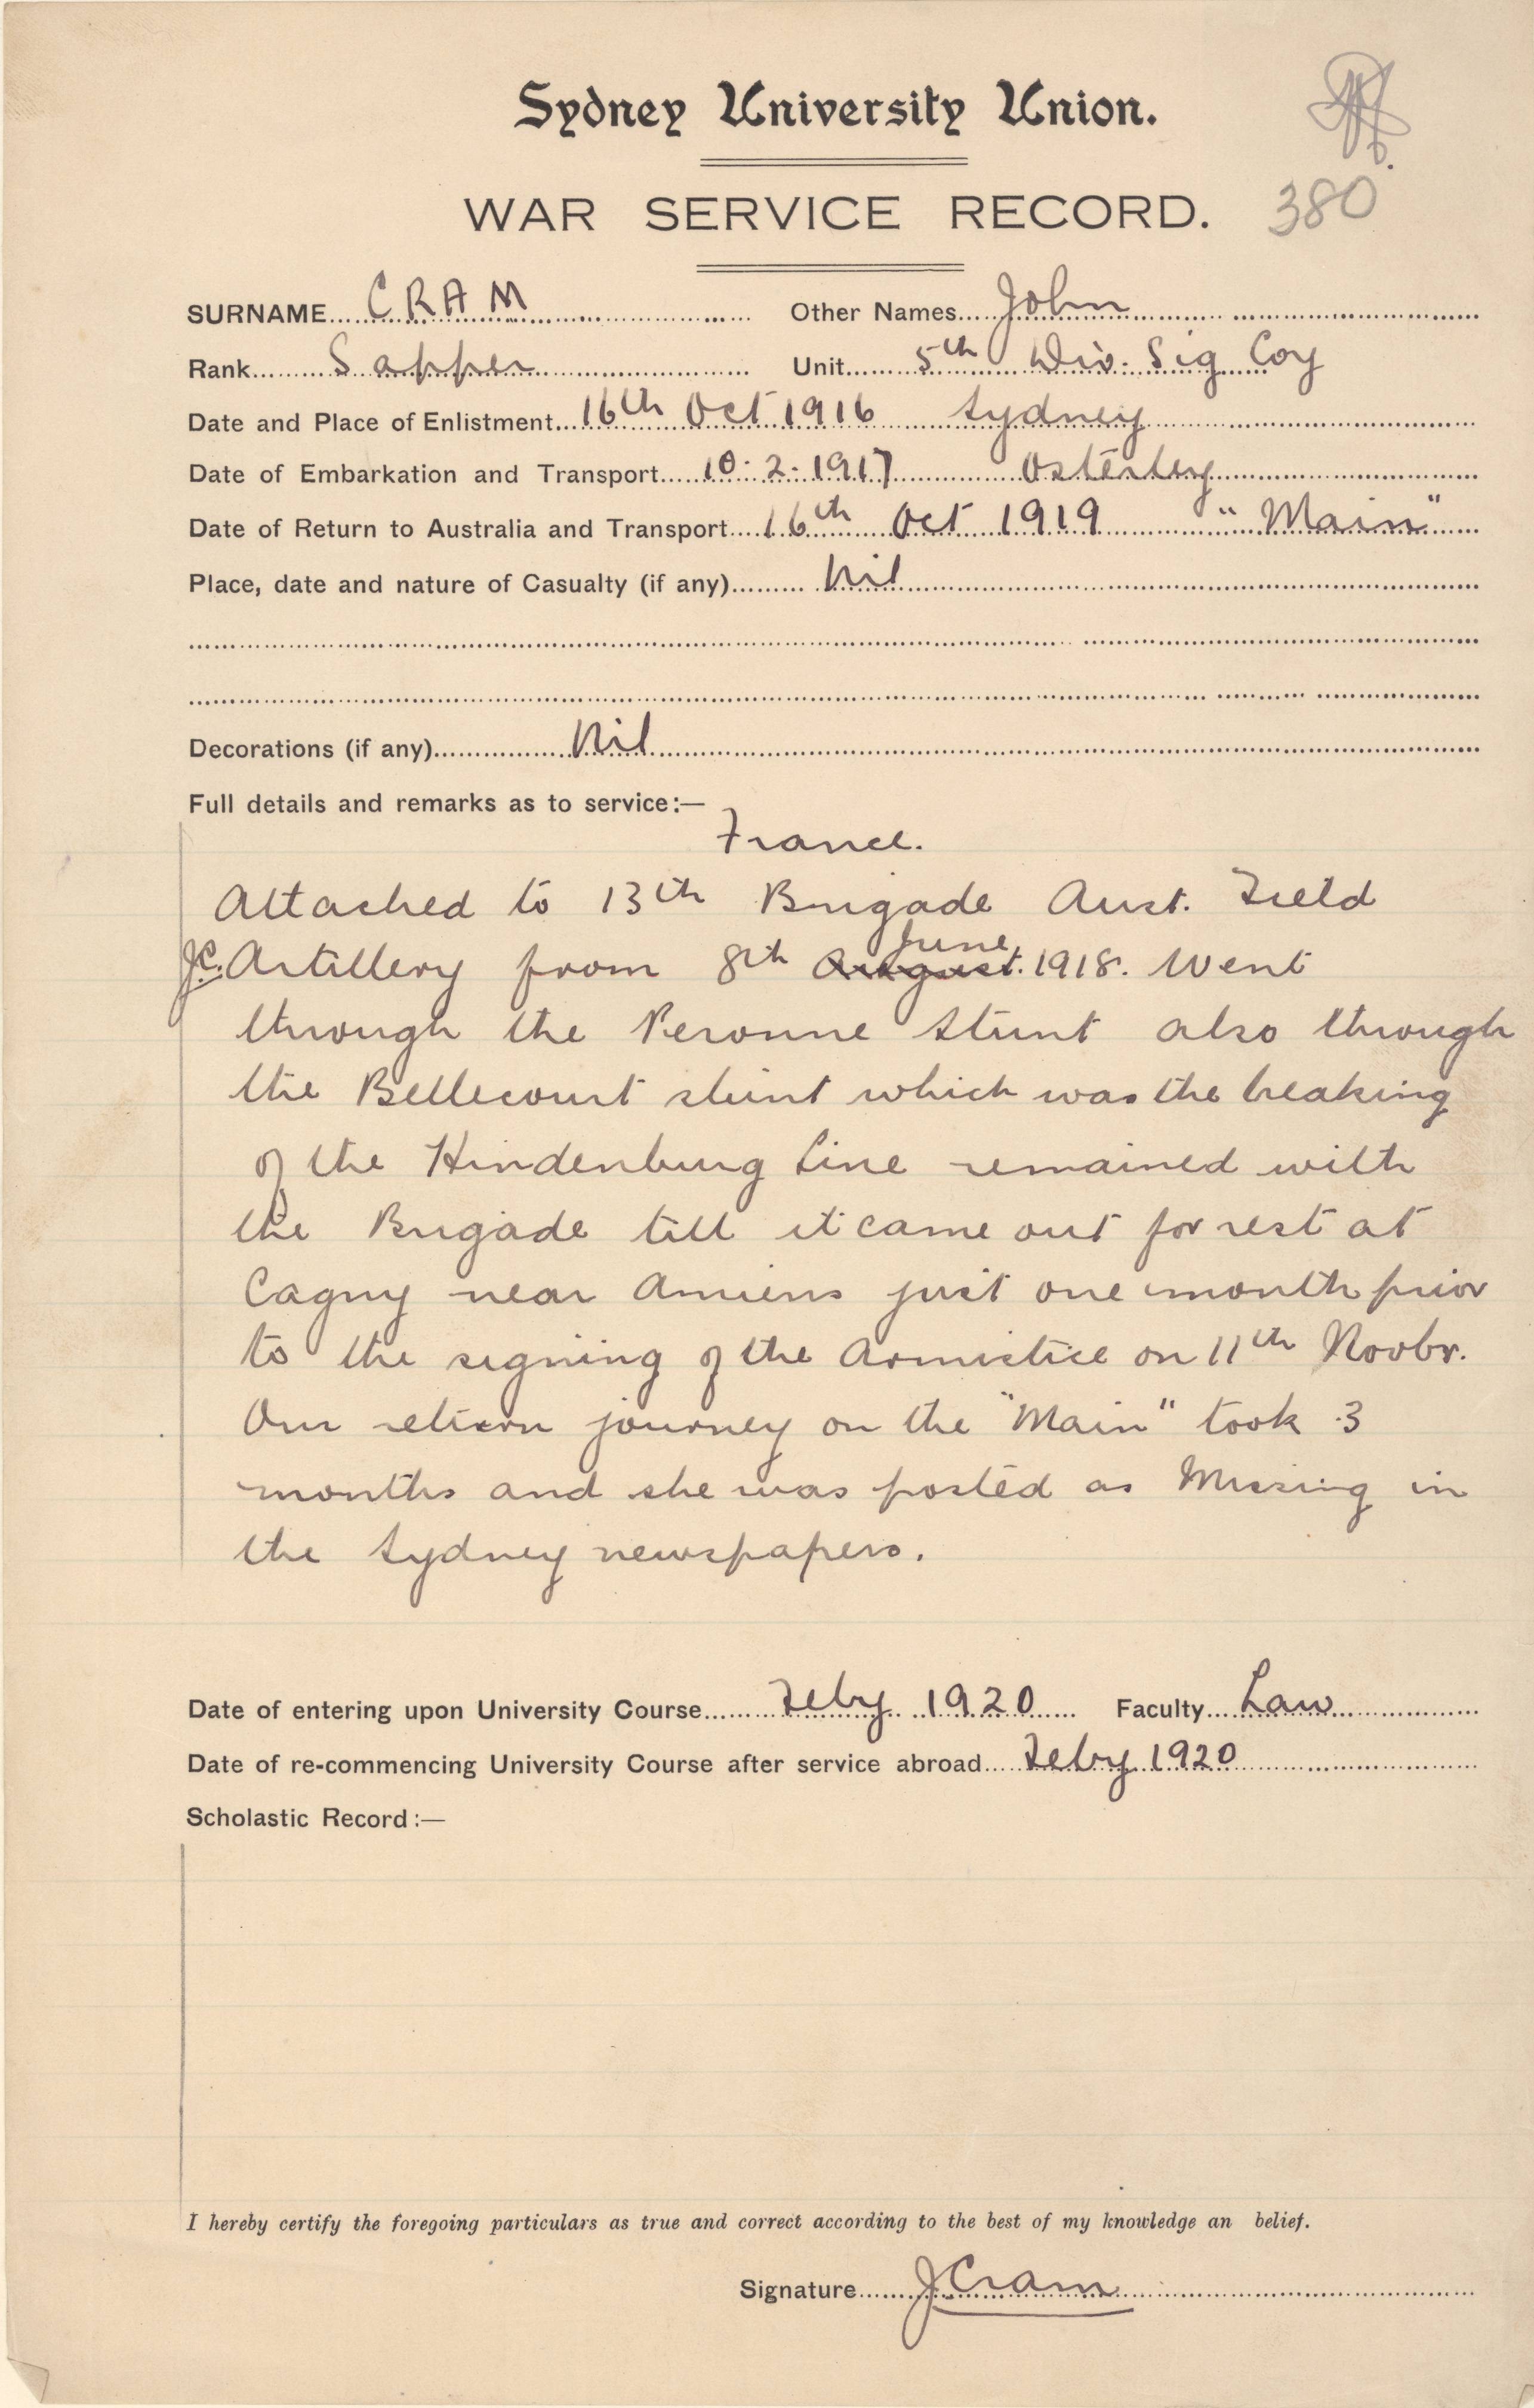 Sydney University Union.
WAR SERVICE RECORD. 380
SURNAME CRAM Other Names John
Rank Sapper Unit 5th Div. Sig Coy
Date and Place of Enlistment 16th Oct 1916 Sydney
Date of Embarkation and Transport 10.2.1917 Osterley
Date of Return to Australia and Transport 16th Oct 1919 "Main"
Place, date and nature of Casualty (if any) Nil
Decorations (if any) Nil
Full details and remarks as to service:—
France.
Attached to 13th Brigade Aust. Field
June
J.C. Artillery from 8th August. 1918. Went
through the Peronne stunt also through
the Bellecourt stunt which was the breaking
of the Hindenburg Line remained with
the Brigade till it came out for rest at
Cagny near Amiens just one month prior
to the signing of the Armistice on 11th Novbr.
Our return journey on the "Main" took 3
months and she was posted as Missing in
the Sydney newspapers.
Date of entering upon University Course Feby 1920 Faculty Law
Date of re-commencing University Course after service abroad Feby 1920
Scholastic Record:—
I hereby certify the foregoing particulars as true and correct according to the best of my knowledge an belief.
Signature J Cram